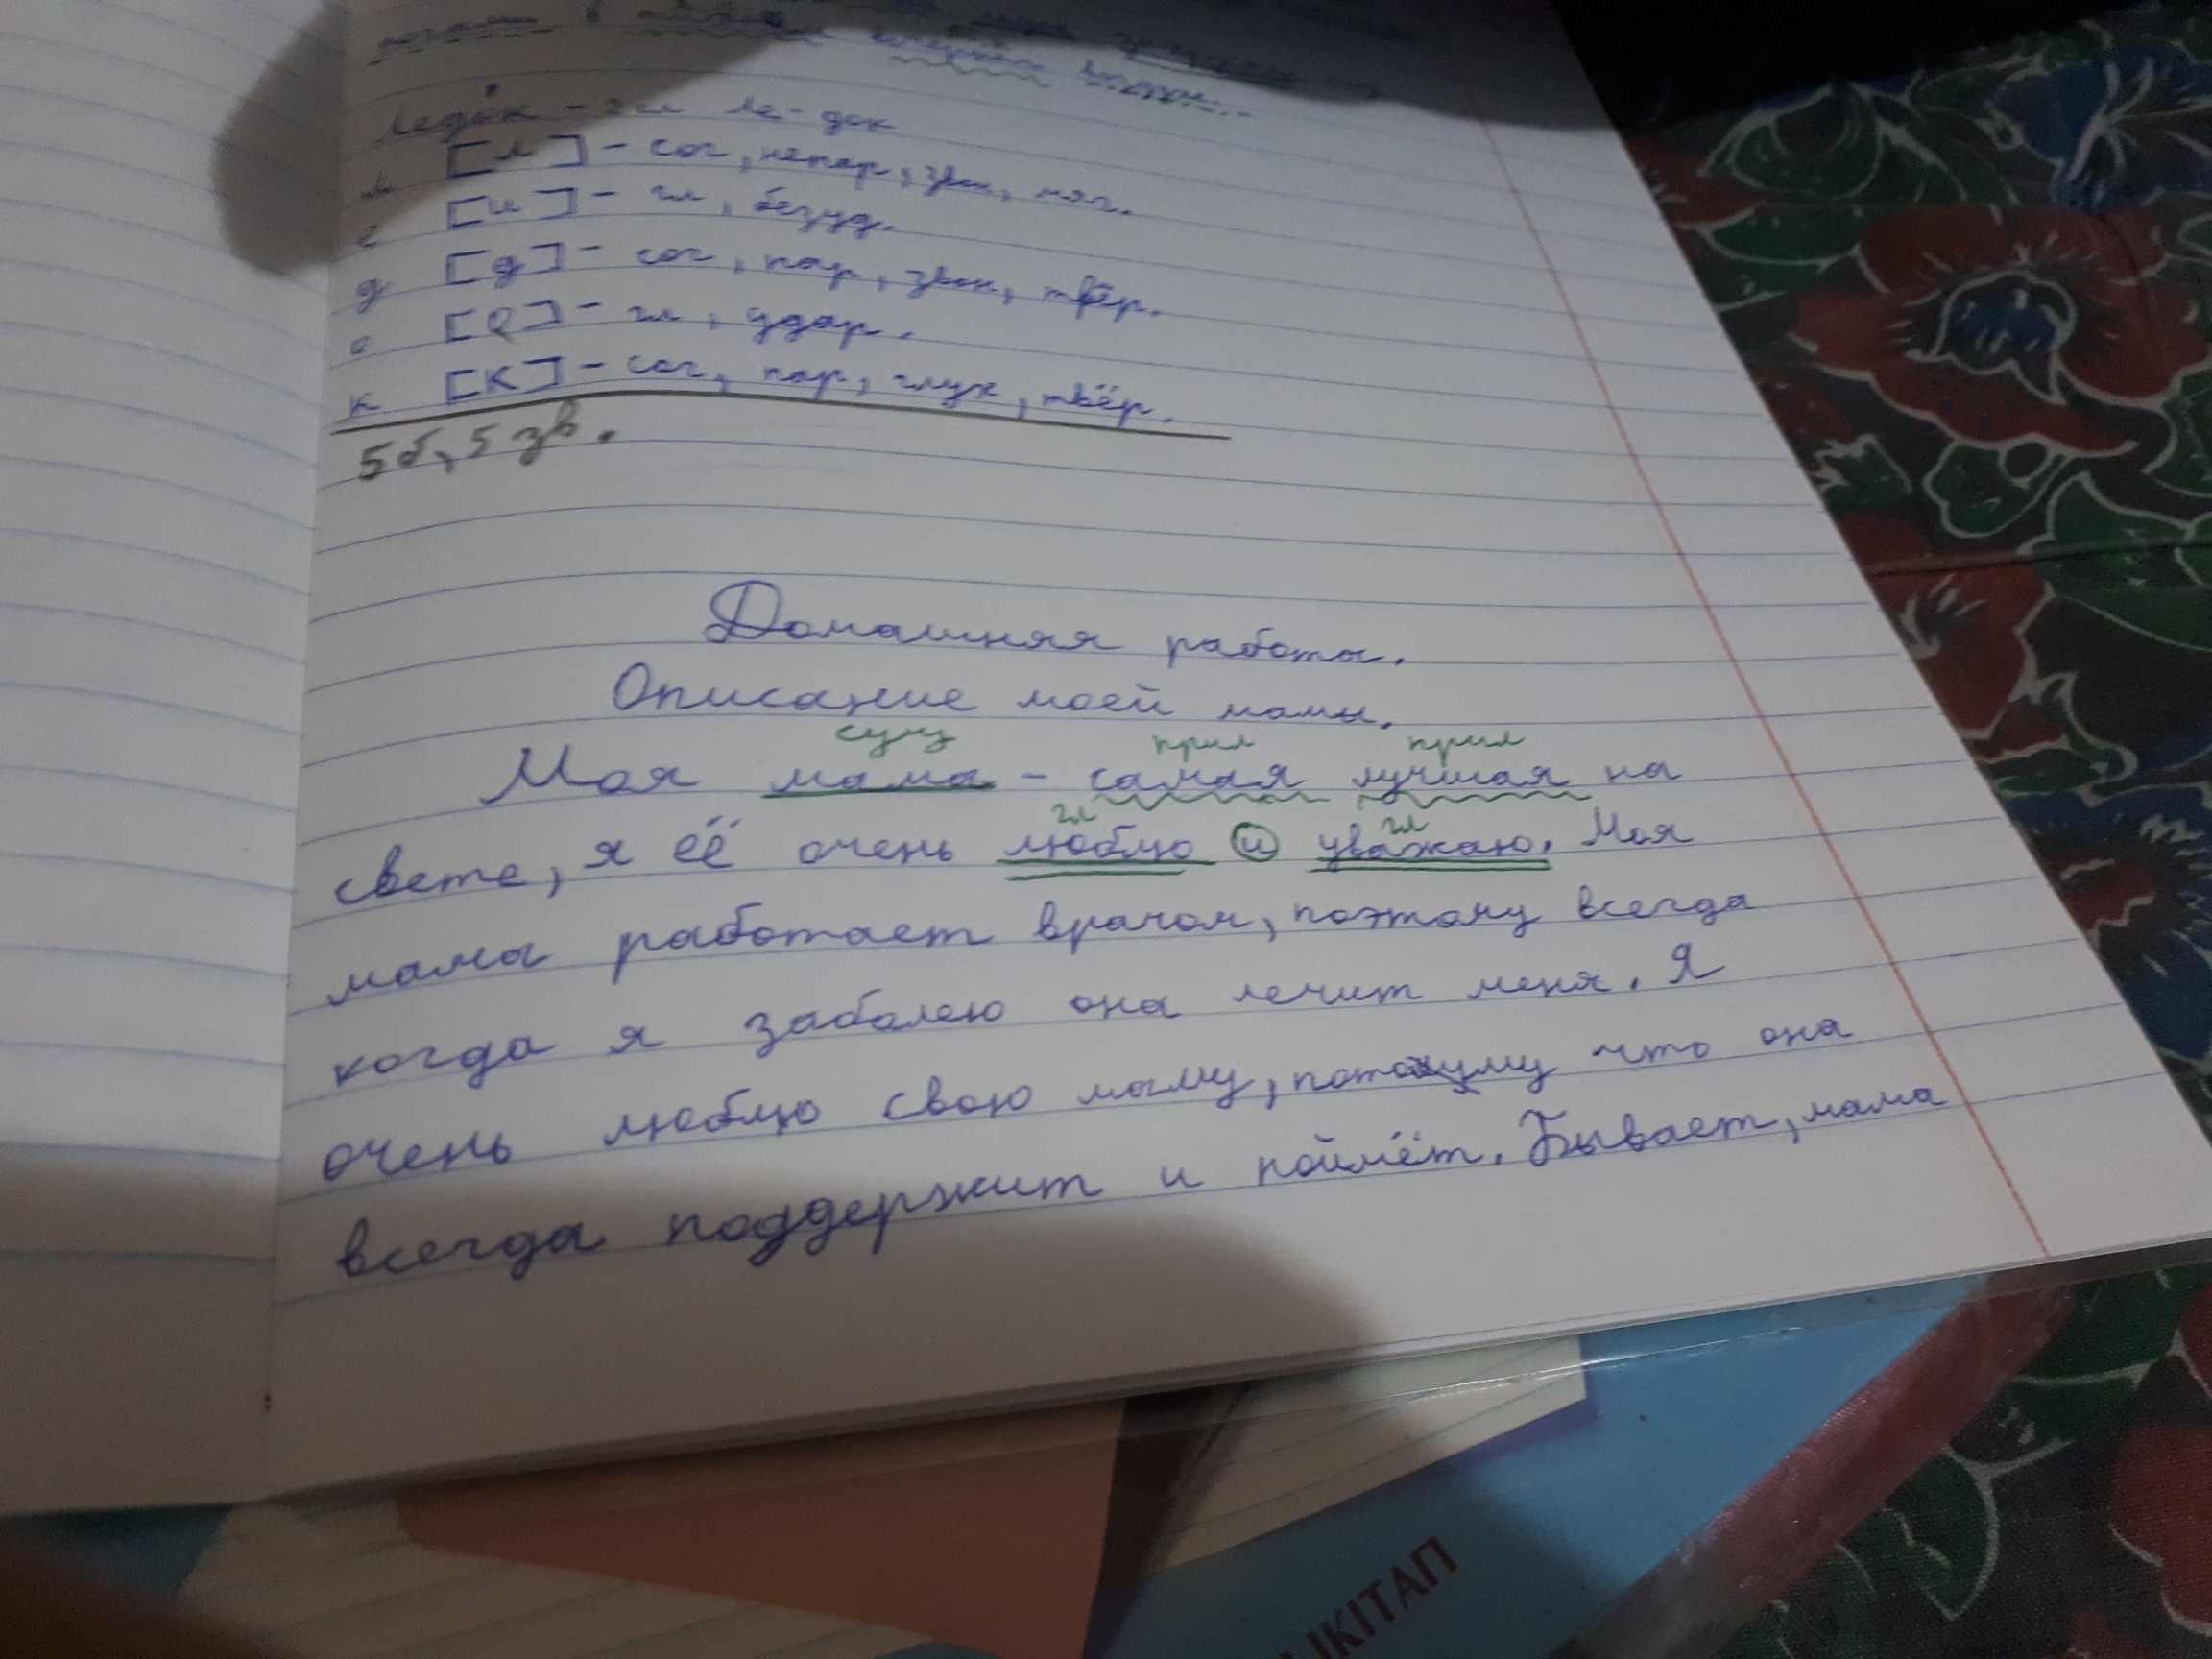 Ледок - 2 сл ле-док
л [л] - сог, непар, звон, мяг.
е [и] - гл, безуд.
д [д] - сог, пар, звон, твёр.
о [о] - гл, удар.
к [к] - сог, пар, глух, твёр.
5б, 5 зв.
Домашняя работы.
Описание моей мамы.
сущ прил прил
Моя мама - самая лучшая на
гл гл
свете, я её очень люблю и уважаю. Моя
мама работает врачом, поэтому всегда
когда я заболею она лечит меня. Я
очень люблю свою мыму, потому что она
всегда поддержит и поймёт. Бывает, мама
КІТАП